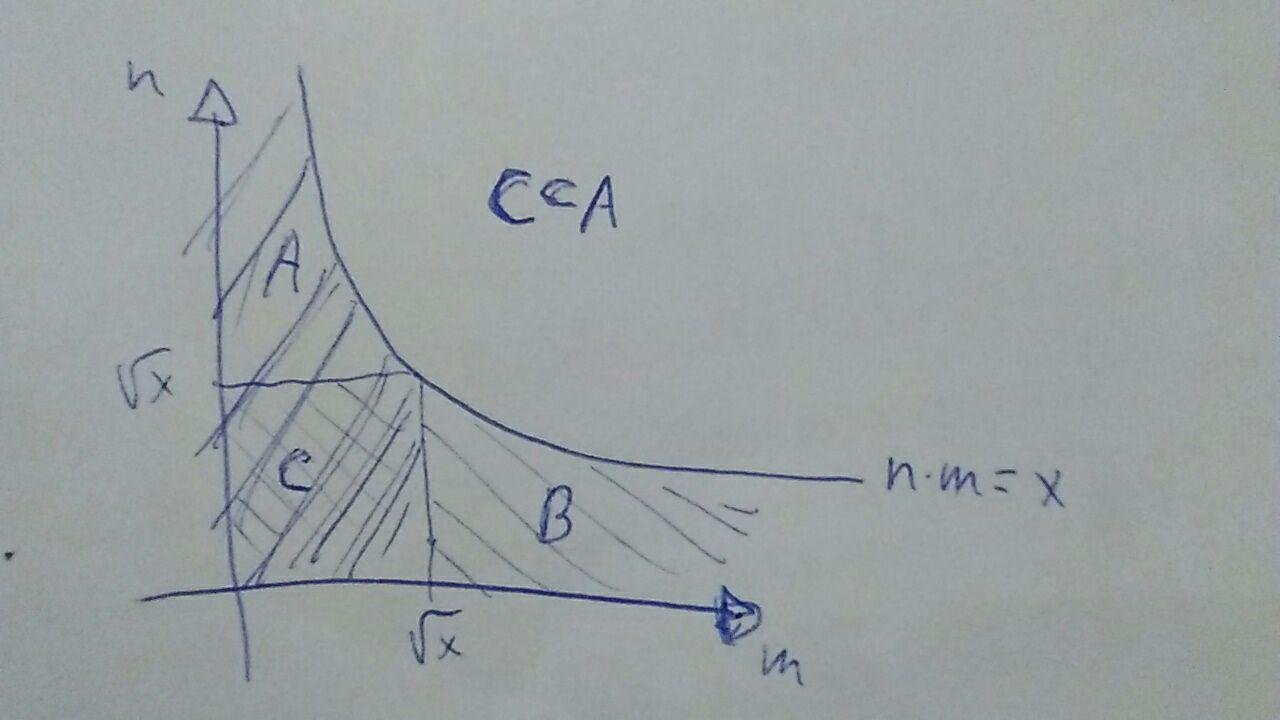 n
C⊂A
A
√x
C
n·m=x
B
√x
m